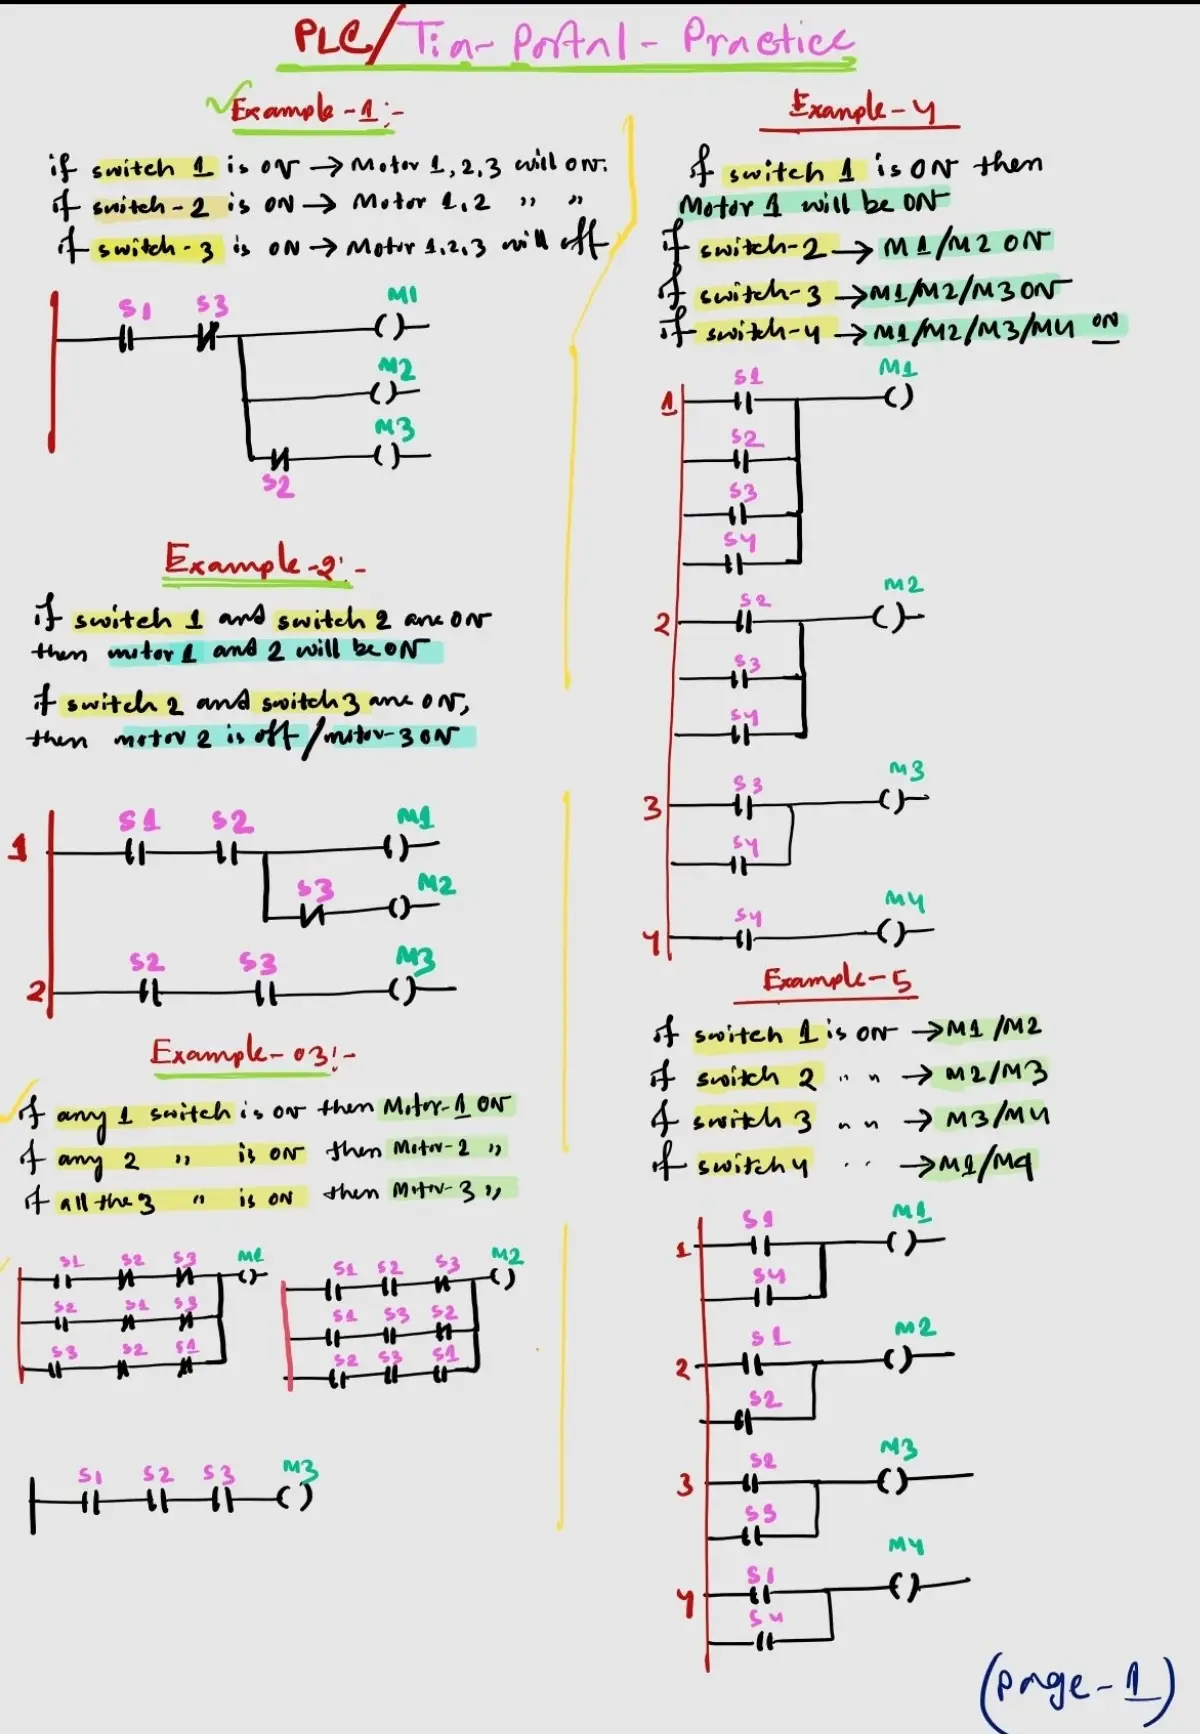 PLC/Tia-Portal-Practice
Example-1:-
if switch 1 is ON → Motor 1,2,3 will ON.
if switch-2 is ON → Motor 1,2 " "
if switch-3 is ON → Motor 1,2,3 will off
S1 S3 M1
M2
M3
S2
Example-2:-
if switch 1 and switch 2 are ON
then motor 1 and 2 will be ON
if switch 2 and switch 3 are ON,
then motor 2 is off/motor-3 ON
1 S1 S2 M1
S3 M2
2 S2 S3 M3
Example-03:-
if any 1 switch is on then Motor-1 ON
if any 2 " is on then Motor-2 "
if all the 3 " is ON then Motor-3 "
S1 S2 S3 M1
S2 S1 S3
S3 S2 S1
S1 S2 S3 M2
S1 S3 S2
S2 S3 S1
S1 S2 S3 M3
Example-4
if switch 1 is ON then
Motor 1 will be ON
if switch-2 → M1/M2 ON
if switch-3 → M1/M2/M3 ON
if switch-4 → M1/M2/M3/M4 ON
1 S1 M1
S2
S3
S4
2 S2 M2
S3
S4
3 S3 M3
S4
4 S4 M4
Example-5
if switch 1 is ON → M1/M2
if switch 2 " " → M2/M3
if switch 3 " " → M3/M4
if switch 4 " " → M1/M4
1 S1 M1
S4
2 S1 M2
S2
3 S2 M3
S3
4 S1 M4
S4
(Page-1)